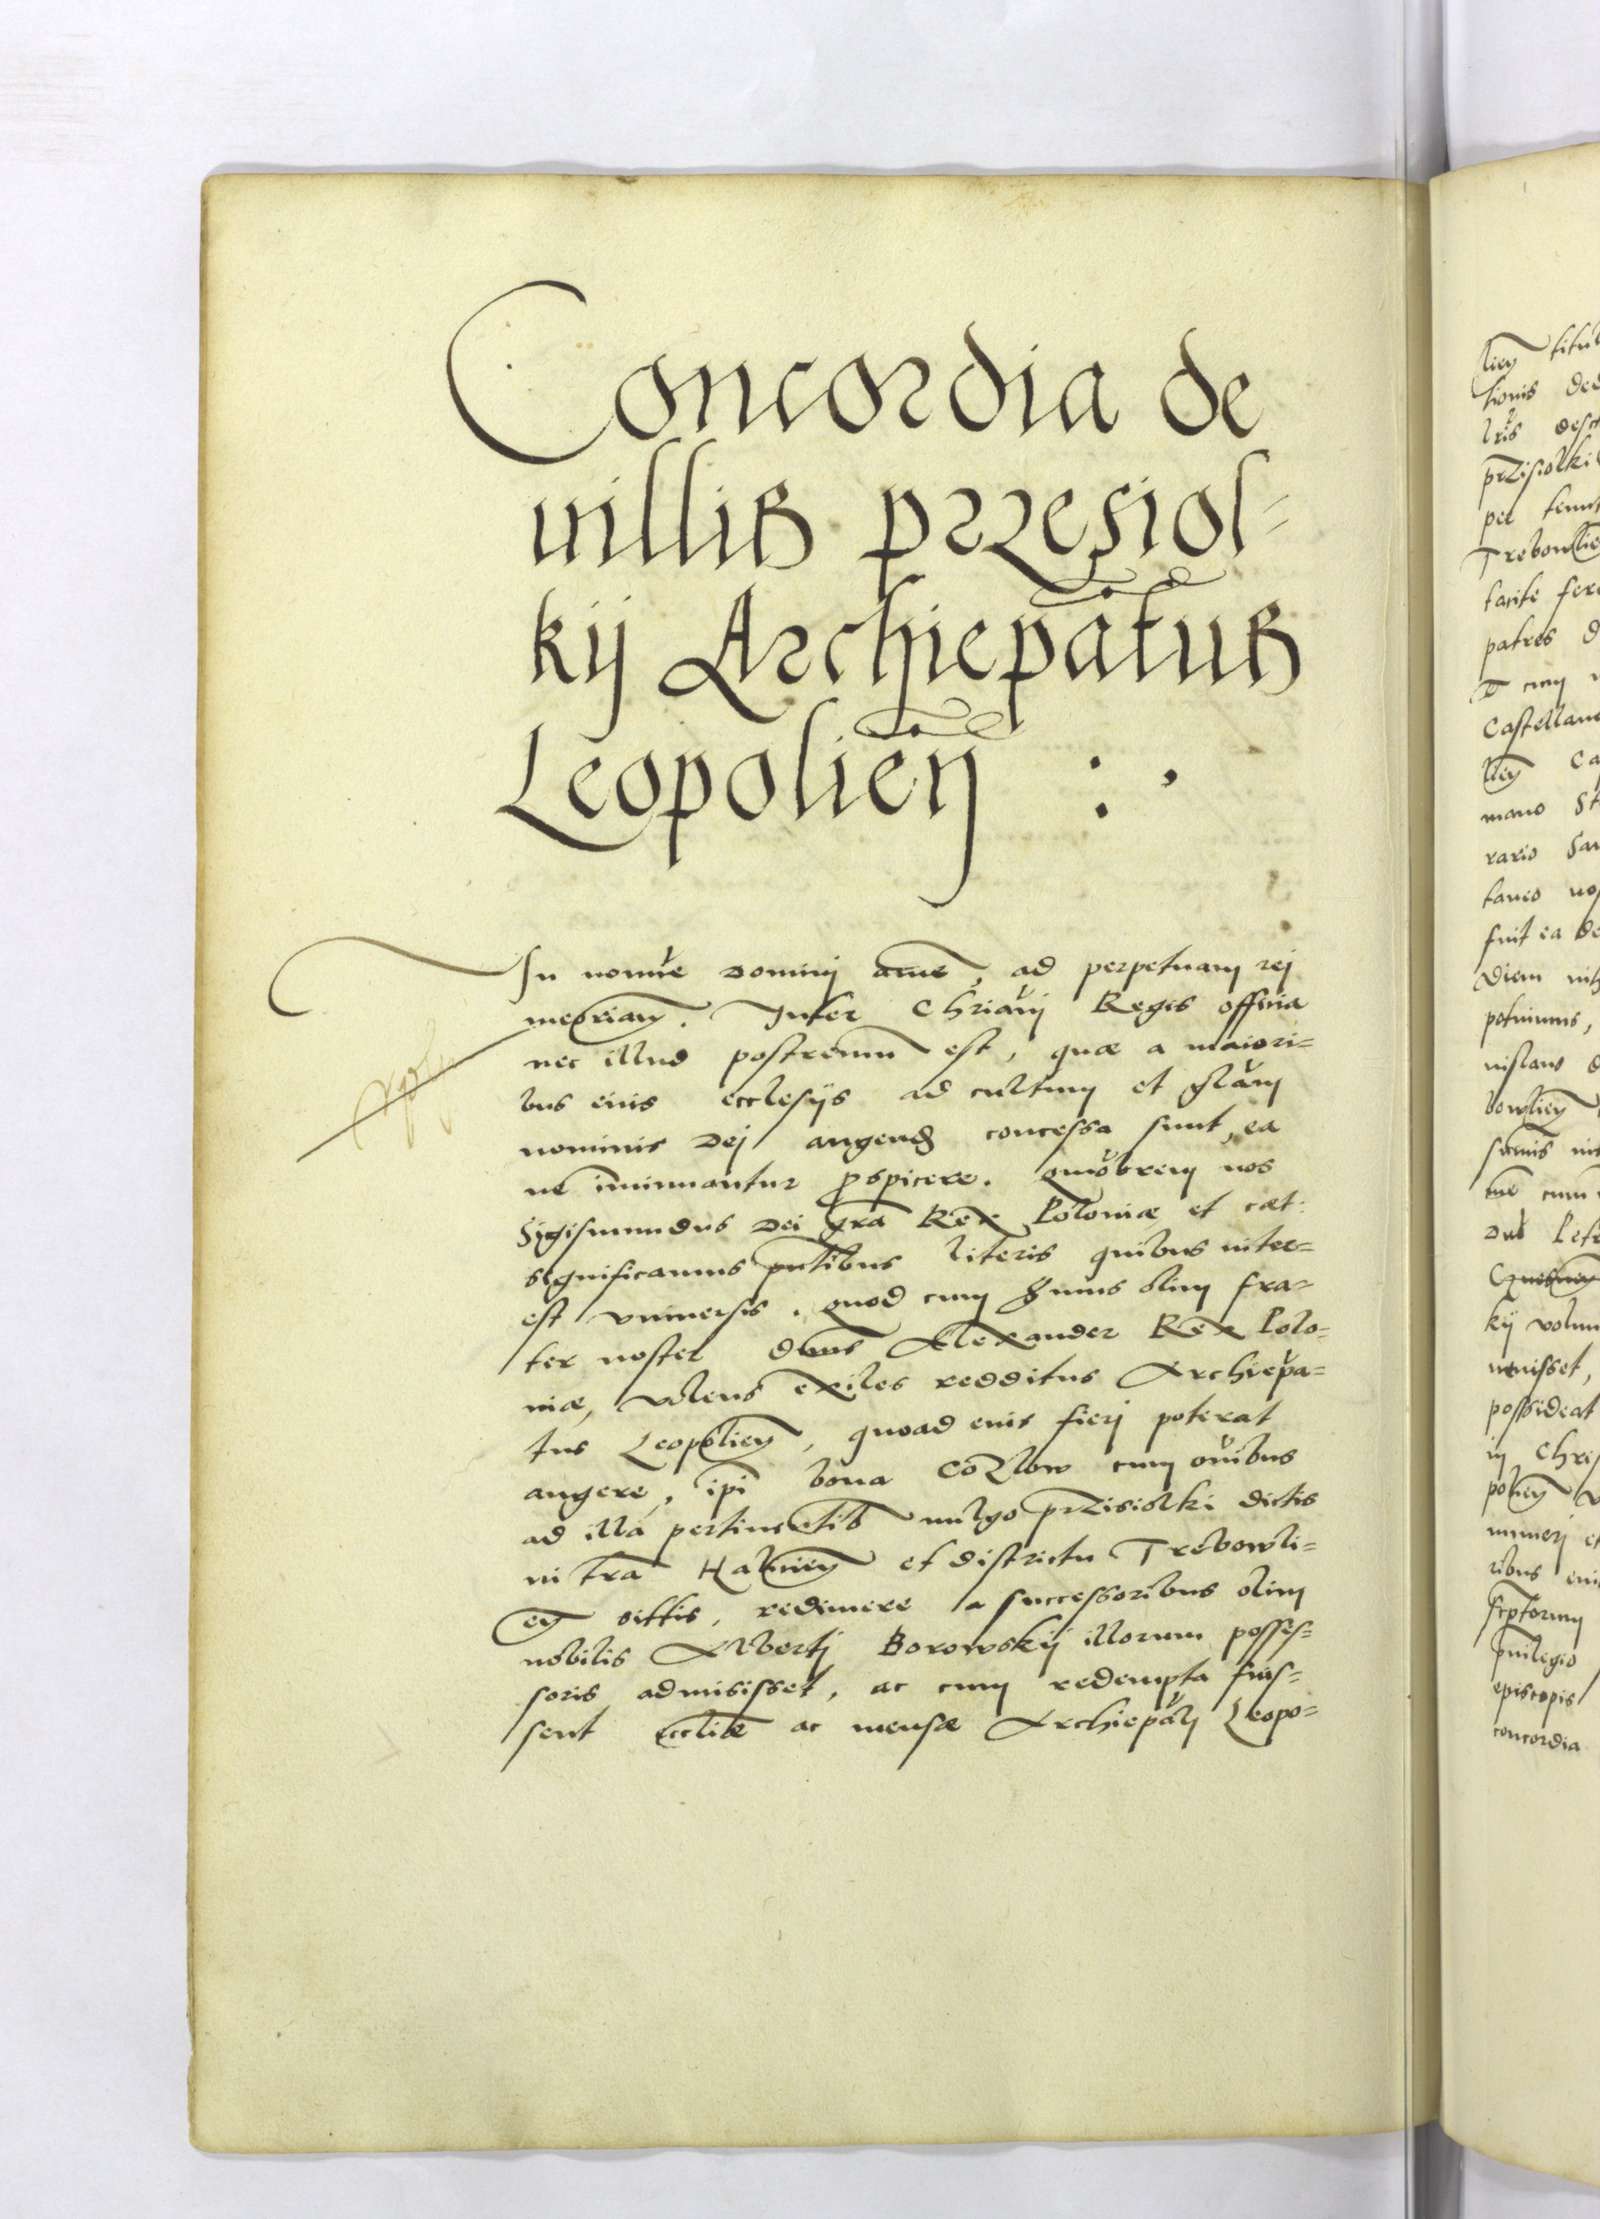 Concordia de
uillis przesiol-
kij Archiepatus
Leopolien :,
In nomie Dominj ame, ad perpetuam rej
meoriam. Inter Chrianj Regis offitia
nec illud postremum est, quæ a maiori-
bus eius ecclesijs ad cultum et glam
nominis Dej augend concessa sunt, ea
ne iminuantur pspicere. Quobrem nos
Sigismundus Dei gra Rex Poloniæ et cæt:
significamus pntibus literis quibus inter-
est vniuersis. Quod cum Smus olim fra-
ter noster dnus Alexander Rex Polo-
niæ, volens exiles redditus Archiepa-
tus Leopolien, quoad eius fierj poterat
augere, ipi bona Cozlow cum oibus
ad illa pertinetib uulgo przisiolki dictis
in tra Halicien et districtu Trebowli-
en sittis, redimere a successoribus olim
nobilis Albertj Borowskij illorum posses-
soris admisisset, ac cum redempta fuis-
sent eccliæ ac mensæ Archiepalj Leopo-
lien titul
tionis ded
lris desc
przisiolki
per
Trebowlie
tacite fer
patres d
cum
Castellano
lien Ca
mano St
rario San
taneo nos
fuit ea de
diem
potuimus,
nislaus d
bowlien
cum
kij volun
uenisset,
possideat
in Chris
polien
munerj et
ribus eius
priuilegio
episcopis
concordia